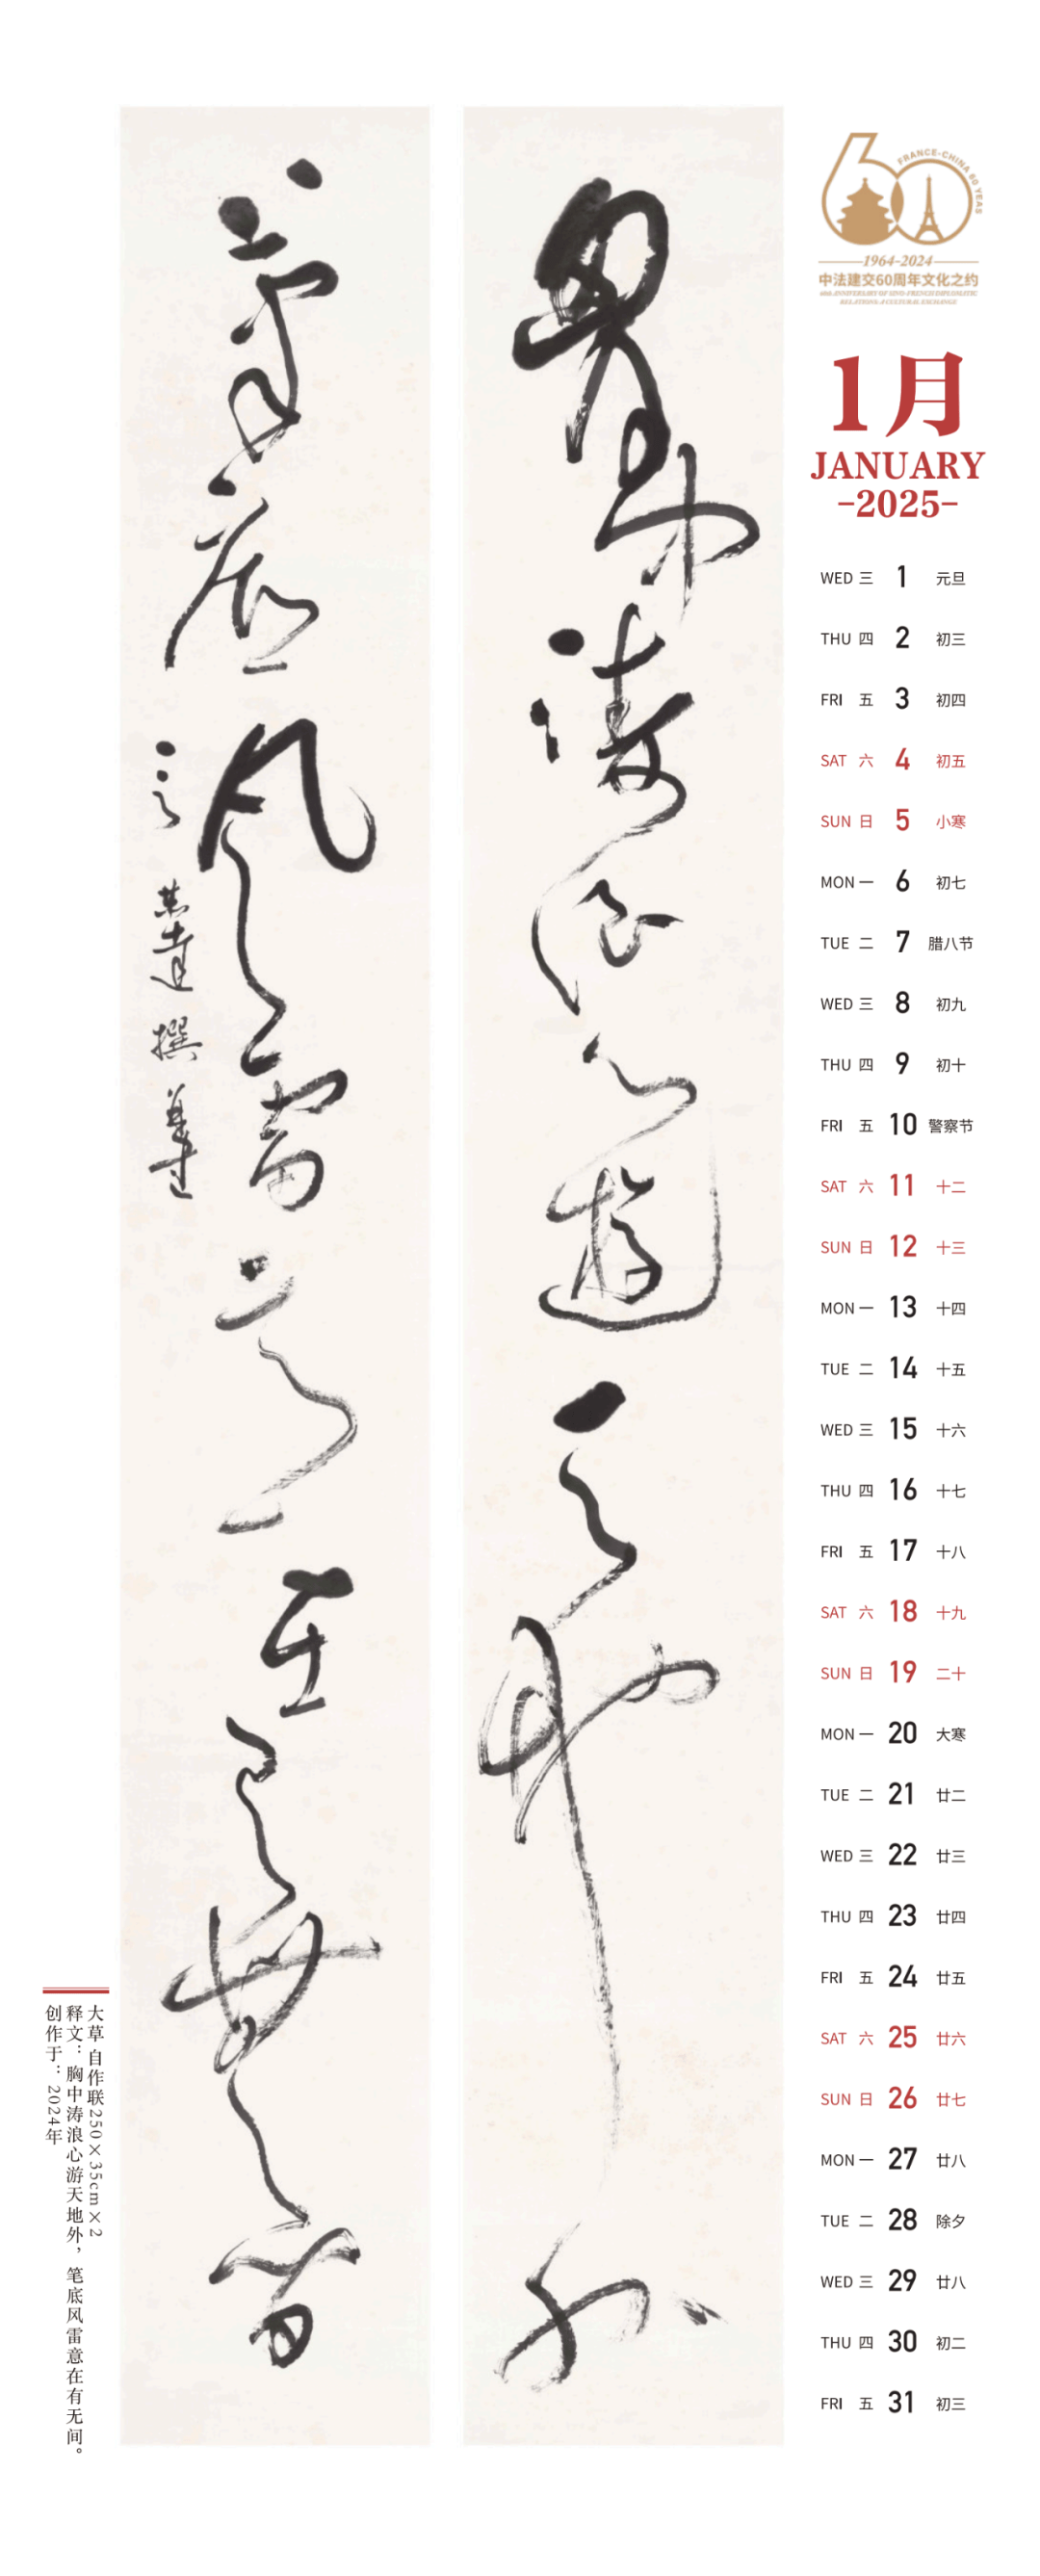 FRANCE-CHINA 60 YEAS
1964-2024
中法建交60周年文化之约
60th ANNIVERSARY OF SINO-FRENCH DIPLOMATIC
RELATIONS: A CULTURAL EXCHANGE
1月
JANUARY
-2025-
WED 三 1 元旦
THU 四 2 初三
FRI 五 3 初四
SAT 六 4 初五
SUN 日 5 小寒
MON 一 6 初七
TUE 二 7 腊八节
WED 三 8 初九
THU 四 9 初十
FRI 五 10 警察节
SAT 六 11 十二
SUN 日 12 十三
MON 一 13 十四
TUE 二 14 十五
WED 三 15 十六
THU 四 16 十七
FRI 五 17 十八
SAT 六 18 十九
SUN 日 19 二十
MON 一 20 大寒
TUE 二 21 廿二
WED 三 22 廿三
THU 四 23 廿四
FRI 五 24 廿五
SAT 六 25 廿六
SUN 日 26 廿七
MON 一 27 廿八
TUE 二 28 除夕
WED 三 29 廿八
THU 四 30 初二
FRI 五 31 初三
胸中涛浪心遊天地外
笔底风雷意在有无间
撰
大草 自作联250×35cm×2
释文：胸中涛浪心游天地外，笔底风雷意在有无间。
创作于：2024年